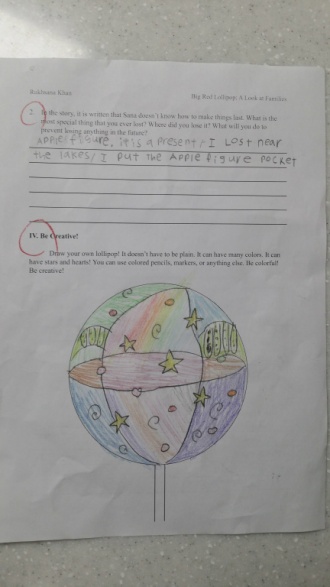 Rukhsana Khan
Big Red Lollipop: A Look at Families
2. In the story, it is written that Sana doesn't know how to make things last. What is the
most special thing that you ever lost? Where did you lose it? What will you do to
prevent losing anything in the future?
Apple figure, it is a present/ I Lost near
the lakes/ I put the Apple figure pocket
IV. Be Creative!
Draw your own lollipop! It doesn't have to be plain. It can have many colors. It can
have stars and hearts! You can use colored pencils, markers, or anything else. Be colorful!
Be creative!